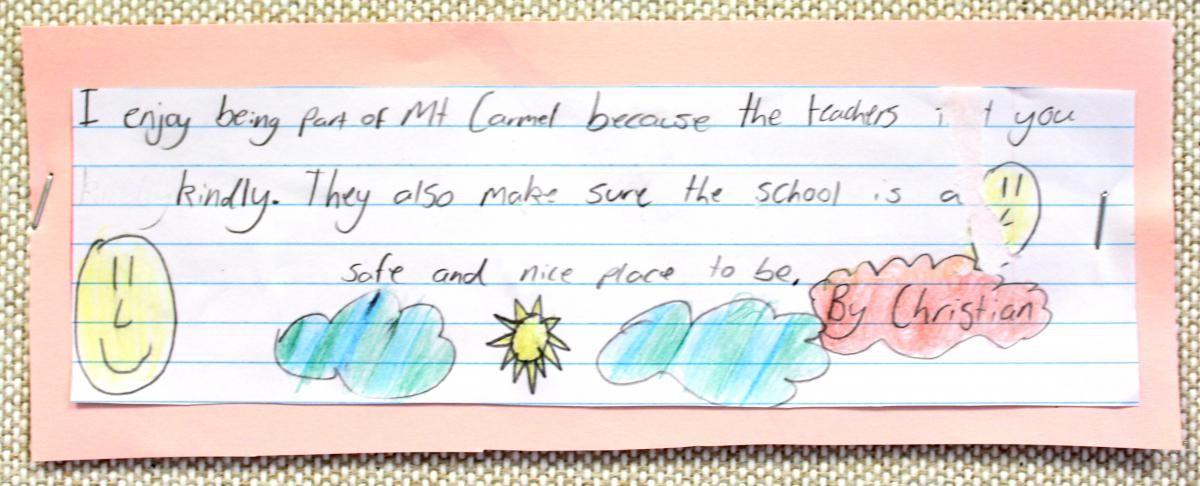 I enjoy being part of Mt Carmel because the teachers you
kindly. They also make sure the school is a
safe and nice place to be.
By Christian